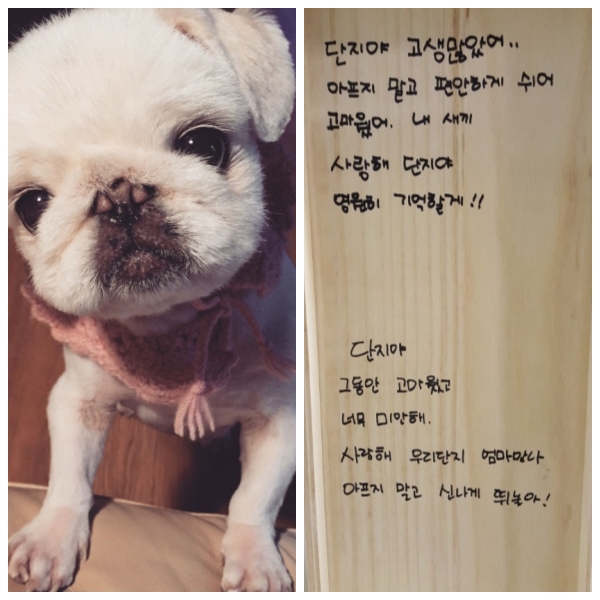 단지야 고생많았어..
아프지 말고 편안하게 쉬어
고마웠어. 내 새끼
사랑해 단지야
영원히 기억할게!!
단지야
그동안 고마웠고
너무 미안해.
사랑해 우리단지 엄마만나
아프지 말고 신나게 뛰놀아!